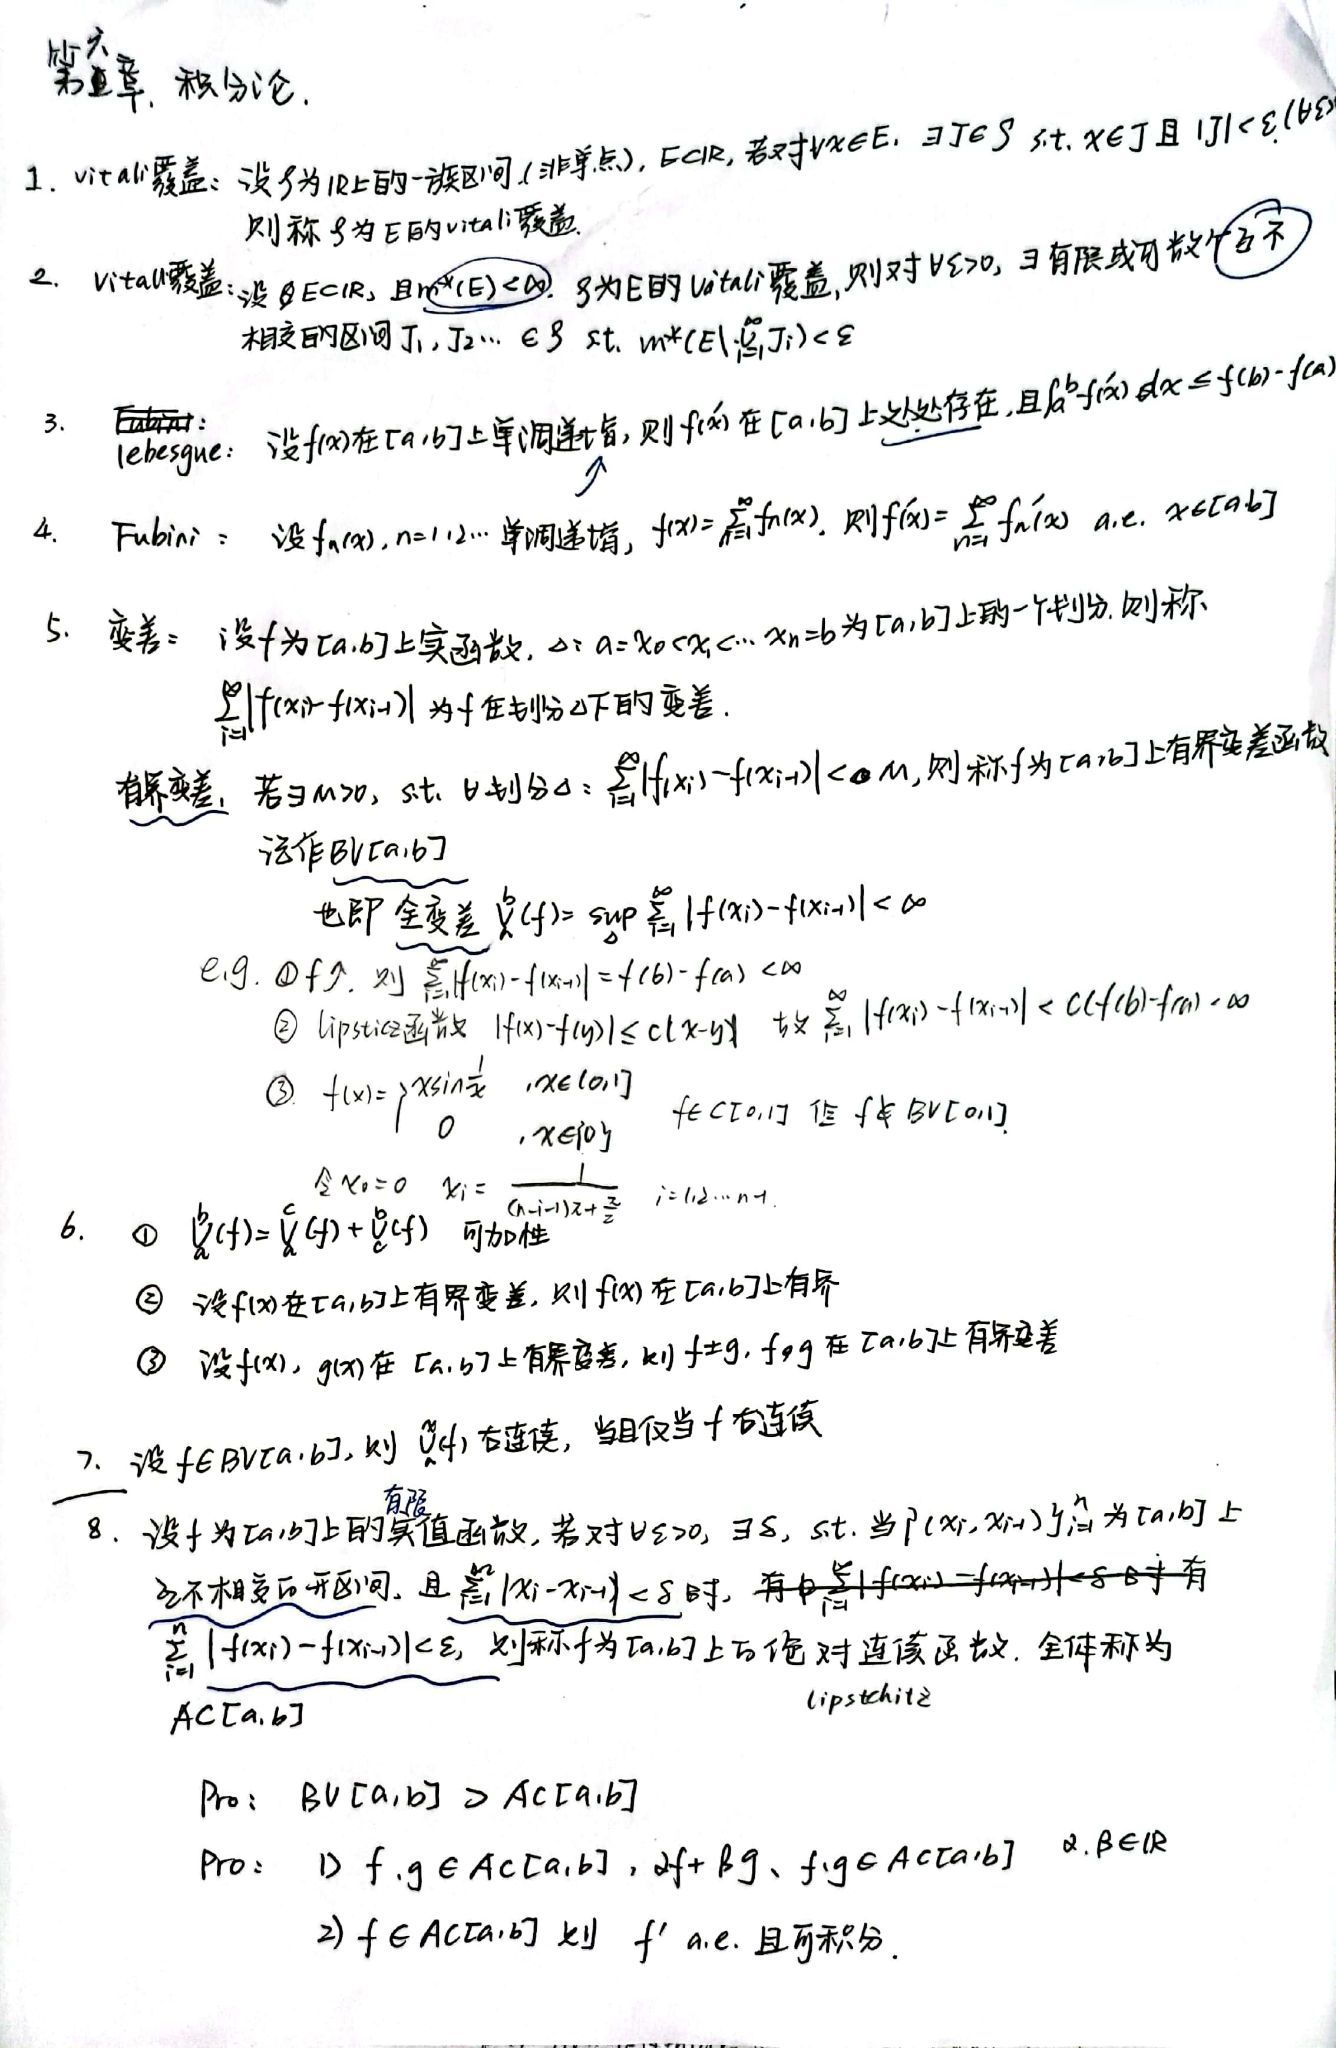 第六章. 积分论.
1. vitali覆盖: 设𝒥为IR上的一族区间(非单点), E⊂IR, 若对∀x∈E. ∃J∈𝒥 s.t. x∈J 且 |J|<ε.(∀ε>
则称𝒥为E的vitali覆盖.
2. Vitali覆盖: 设E⊂IR, 且m*(E)<∞. 𝒥为E的Vitali覆盖, 则对∀ε>0, ∃有限或可数个互不
相交的区间J₁, J₂… ∈𝒥 s.t. m*(E\∪_{i=1}^∞ J_i)<ε
3. lebesgue: 设f(x)在[a,b]上单调递增, 则f'(x)在[a,b]上处处存在, 且∫_a^b f'(x)dx≤f(b)-f(a)
4. Fubini: 设f_n(x), n=1,2… 单调递增, f(x)=∑_{n=1}^∞ f_n(x). 则f'(x)=∑_{n=1}^∞ f_n'(x) a.e. x∈[a,b]
5. 变差: 设f为[a,b]上实函数, Δ: a=x₀<x₁<… x_n=b为[a,b]上的一个划分. 则称
∑_{i=1}^∞|f(x_i)-f(x_{i-1})| 为f在划分Δ下的变差.
有界变差, 若∃M>0, s.t. ∀划分Δ: ∑_{i=1}^∞|f(x_i)-f(x_{i-1})|<M, 则称f为[a,b]上有界变差函数
记作BV[a,b]
也即 全变差 V_a^b(f)= sup_Δ ∑_{i=1}^∞ |f(x_i)-f(x_{i-1})|<∞
e.g. ① f↗. 则 ∑_{i=1}^∞|f(x_i)-f(x_{i-1})|=f(b)-f(a)<∞
② lipsticz函数 |f(x)-f(y)|≤c|x-y| 故 ∑_{i=1}^∞ |f(x_i)-f(x_{i-1})|<C(f(b)-f(a))<∞
③ f(x)={ xsin 1/x , x∈(0,1]
0 , x∈{0} f∈C[0,1] 但 f∉BV[0,1].
令x₀=0 x_i= 1/((n-i-1)π+π/2) i=1,2…n-1.
6. ① V_a^b(f)=V_a^c(f)+V_c^b(f) 可加性
② 设f(x)在[a,b]上有界变差, 则f(x)在[a,b]上有界
③ 设f(x), g(x)在[a,b]上有界变差, 则f±g, f·g在[a,b]上有界变差
7. 设f∈BV[a,b], 则V_a^x(f)右连续, 当且仅当f右连续
8. 设f为[a,b]上的有限实值函数, 若对∀ε>0, ∃δ, s.t. 当{(x_i, x_{i-1})}_{i=1}^n为[a,b]上
互不相交的开区间, 且∑_{i=1}^n|x_i-x_{i-1}|<δ时, 有
∑_{i=1}^n |f(x_i)-f(x_{i-1})|<ε, 则称f为[a,b]上的绝对连续函数. 全体称为
AC[a,b] lipstchitz
Pro: BV[a,b]⊃AC[a,b]
Pro: 1) f,g∈AC[a,b], αf+βg、f·g∈AC[a,b] α,β∈IR
2) f∈AC[a,b] 则 f' a.e. 且可积分.